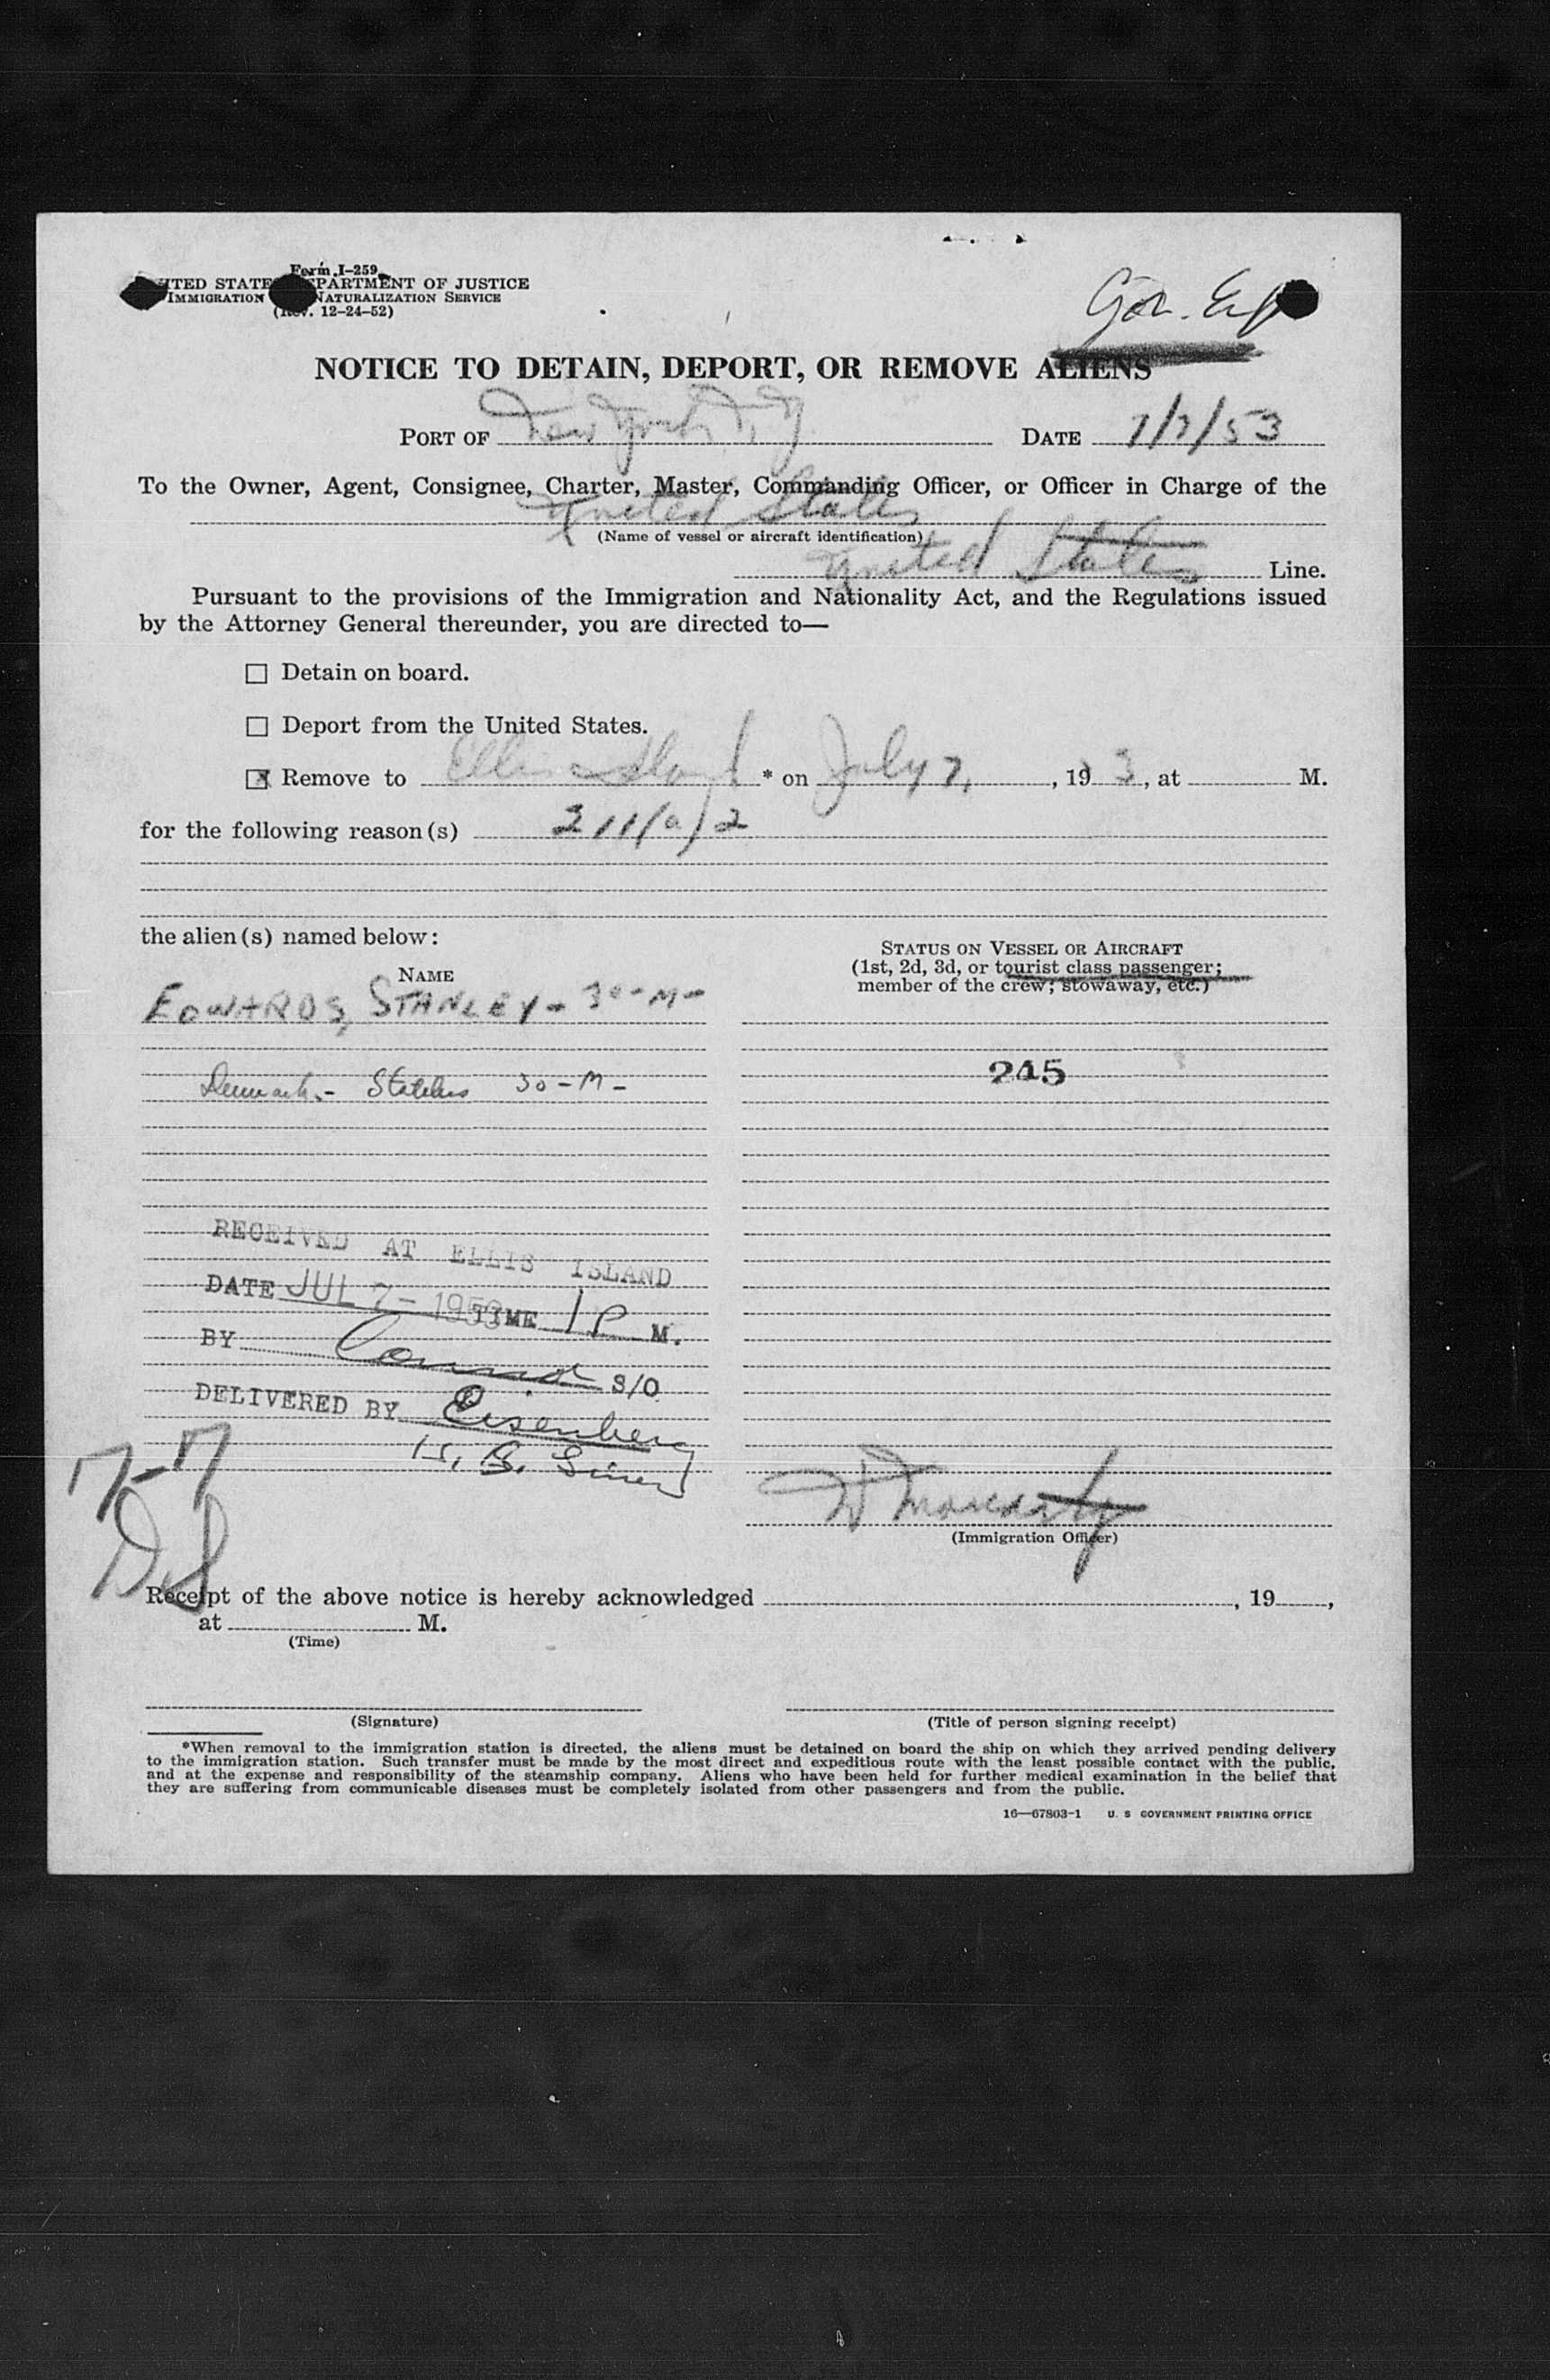 Form I-259
UNITED STATES DEPARTMENT OF JUSTICE
IMMIGRATION NATURALIZATION SERVICE
(Rev. 12-24-52)
Gov. Exp
NOTICE TO DETAIN, DEPORT, OR REMOVE ALIENS
PORT OF New York, N.Y. DATE 7/7/53
To the Owner, Agent, Consignee, Charter, Master, Commanding Officer, or Officer in Charge of the
United States
(Name of vessel or aircraft identification)
United States Line.
Pursuant to the provisions of the Immigration and Nationality Act, and the Regulations issued
by the Attorney General thereunder, you are directed to—
☐ Detain on board.
☐ Deport from the United States.
☒ Remove to Ellis Island * on July 7, , 19 3, at M.
for the following reason(s) 211(a)2
the alien(s) named below:
NAME
STATUS ON VESSEL OR AIRCRAFT
(1st, 2d, 3d, or tourist class passenger;
member of the crew; stowaway, etc.)
EDWARDS, STANLEY - 30-M-
245
Denmark - Stateless 30-M-
RECEIVED AT ELLIS ISLAND
DATE JUL 7- 1953 TIME 1 P M.
BY S/O
DELIVERED BY Eisenberg
7-7
(Immigration Officer)
Receipt of the above notice is hereby acknowledged , 19 ,
at M.
(Time)
(Signature) (Title of person signing receipt)
*When removal to the immigration station is directed, the aliens must be detained on board the ship on which they arrived pending delivery
to the immigration station. Such transfer must be made by the most direct and expeditious route with the least possible contact with the public,
and at the expense and responsibility of the steamship company. Aliens who have been held for further medical examination in the belief that
they are suffering from communicable diseases must be completely isolated from other passengers and from the public.
16—67803-1 U. S GOVERNMENT PRINTING OFFICE